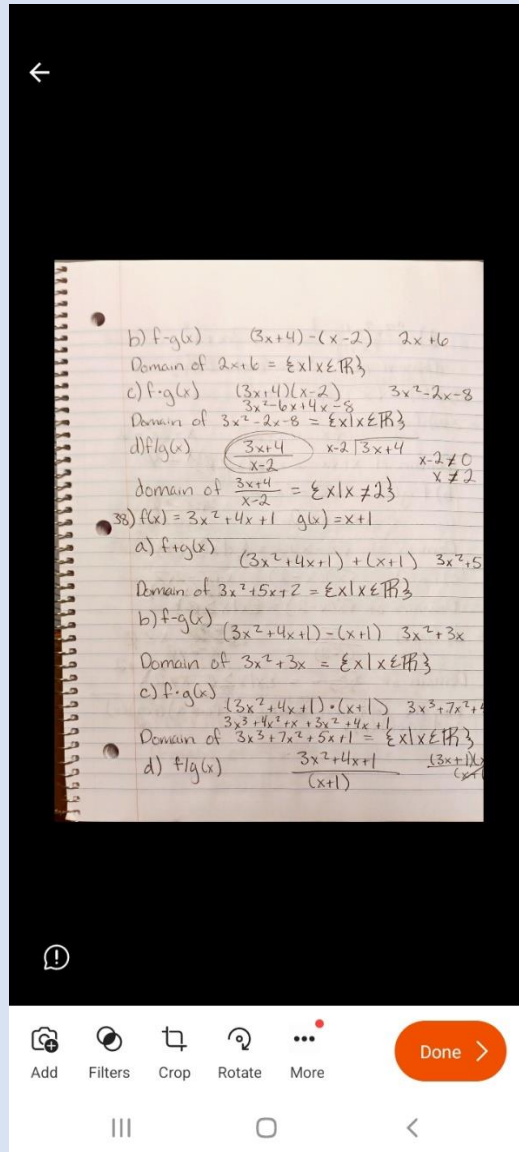 b) f-g(x) (3x+4)-(x-2) 2x+6
Domain of 2x+6 = {x|x∈ℝ}
c) f·g(x) (3x+4)(x-2) 3x²-2x-8
3x²-6x+4x-8
Domain of 3x²-2x-8 = {x|x∈ℝ}
d) f/g(x) 3x+4/x-2 x-2⟌3x+4 x-2≠0
x≠2
domain of 3x+4/x-2 = {x|x≠2}
38) f(x) = 3x²+4x+1 g(x)=x+1
a) f+g(x)
(3x²+4x+1)+(x+1) 3x²+5
Domain of 3x²+5x+2 = {x|x∈ℝ}
b) f-g(x)
(3x²+4x+1)-(x+1) 3x²+3x
Domain of 3x²+3x = {x|x∈ℝ}
c) f·g(x)
(3x²+4x+1)·(x+1) 3x³+7x²+
3x³+4x²+x+3x²+4x+1
Domain of 3x³+7x²+5x+1 = {x|x∈ℝ}
d) f/g(x) 3x²+4x+1/(x+1) (3x+1)(
Add Filters Crop Rotate More
Done